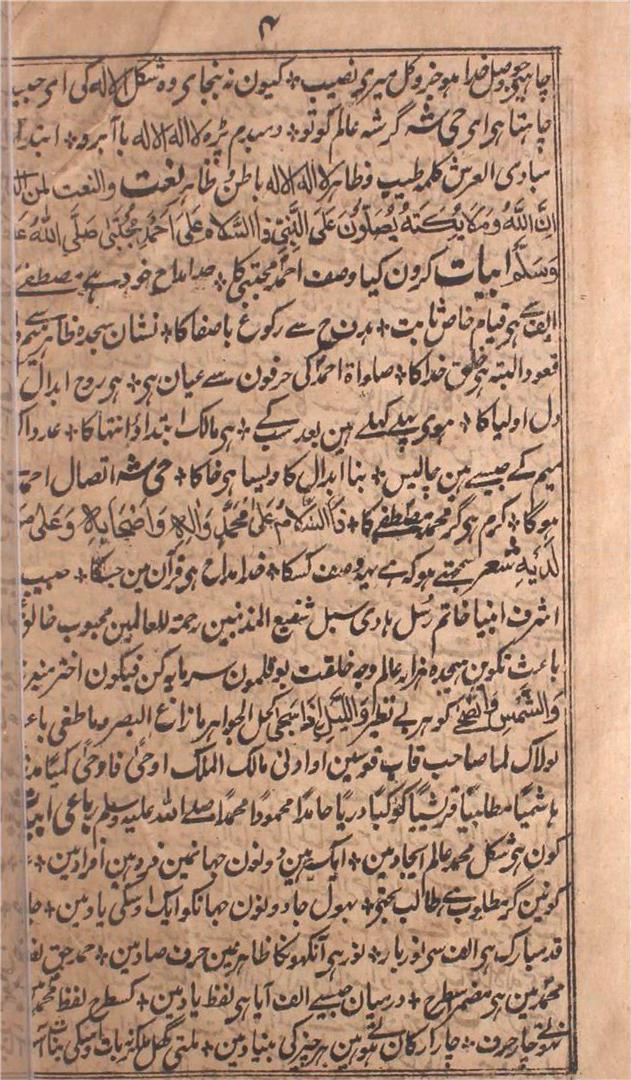 ۴
چاہیی جو وصل خدا ہو خیر و کل میری نصیب * کیون نہ بنجای وہ شکل الا لہ کی ای حبیب
چاہتا ہی ای حی شہ گر شہ عالم کو تو * دمبدم پڑہ لا الہ الا لہ با آبرو * ابتدا
مبادی العرش کلمہ طیب و ظاہر لا الہ الا لہ باطن و ظاہر نعت والنعت لمن
اِنَّ اللّٰهَ وَمَلَایِٕکَتَهُ یُصَلُّوْنَ عَلَی النَّبِیِّ وَالسَّلَامُ عَلٰی اَحْمَدَ مُجْتَبٰی صَلَّی اللّٰهُ عَلَ
وَسَلَّمَ ابیات کرون کیا وصف احمد مجتبیٰ کا * خدا مداح خود ہے مصطفےٰ
الف سے ہی قیام خاص ثابت * بدن ح سے رکوع باصفا کا * نشان سجدہ ظاہر ہے میم
قعود البتہ ہی خلق خدا کا * صلواۃ احمد کی حرفون سے عیان ہی * ہی روح ابدال
دل اولیا کا * ہوی پہلے کہلے ہین بعد سب کے * ہی مالک ابتدا و انتہا کا * عدد
میم کے جیسے ہین چالیس * بنا ابدال کا ویسا ہی خاکا * حی شہ اتصال احمد
ہوگا * کرم ہی گر محمد مصطفےٰ کا * وَالسَّلَامُ عَلٰی مُحَمَّدٍ وَاٰلِهٖ وَاَصْحَابِهٖ وَعَلٰی مَ
لَدَیْهِ شعر سمجتے ہو کہ ہے یہہ وصف کسکا * خدا مداح ہی قرآن مین جسکا * حبیب
اشرف انبیا خاتم رسل ہادی سبل شفیع المذنبین رحمۃ للعالمین محبوب خالق
باعث تکوین ہیجدہ ہزار عالم وجہ خلقت بوقلمون سرمایہ کن فیکون اختر منیر
وَالشَّمْسِ وَالضُّحٰی گوہر بے نظیر وَاللَّیْلِ اِذَا سَجٰی کحل الجواہر مازاغ البصر وماطغی باعث
لولاک لما صاحب قاب قوسین او ادنی مالک الملک اوحیٰ فاوحیٰ
ہاشمیًا مطلبیًا قرشیًا کوکبًا دریًا حامدًا محمودًا محمدًا صلے اللہ علیہ وسلم رباعی ابیات
کون ہی شکل محمد عالم ایجاد مین * ایک ہین دونون جہانمین فرد ہین افراد مین *
کونین گر مطلوب ہے طالب بحنبی * بہول جا دونون جہانکو ایک اوسکی یاد مین *
قد مبارک ہی الف سی نور بار * نور ہی آنکہونکا ظاہر عین حرف صاد مین * حمد حق
محمد مین ہی مضمر سطرح * درمیان جیسے الف آیا ہی لفظ یاد مین * کسطرح لفظ محمد
نہوتے چار حرف * چار ارکان سے ہوے ہین ہر چیز کی بنیاد مین *